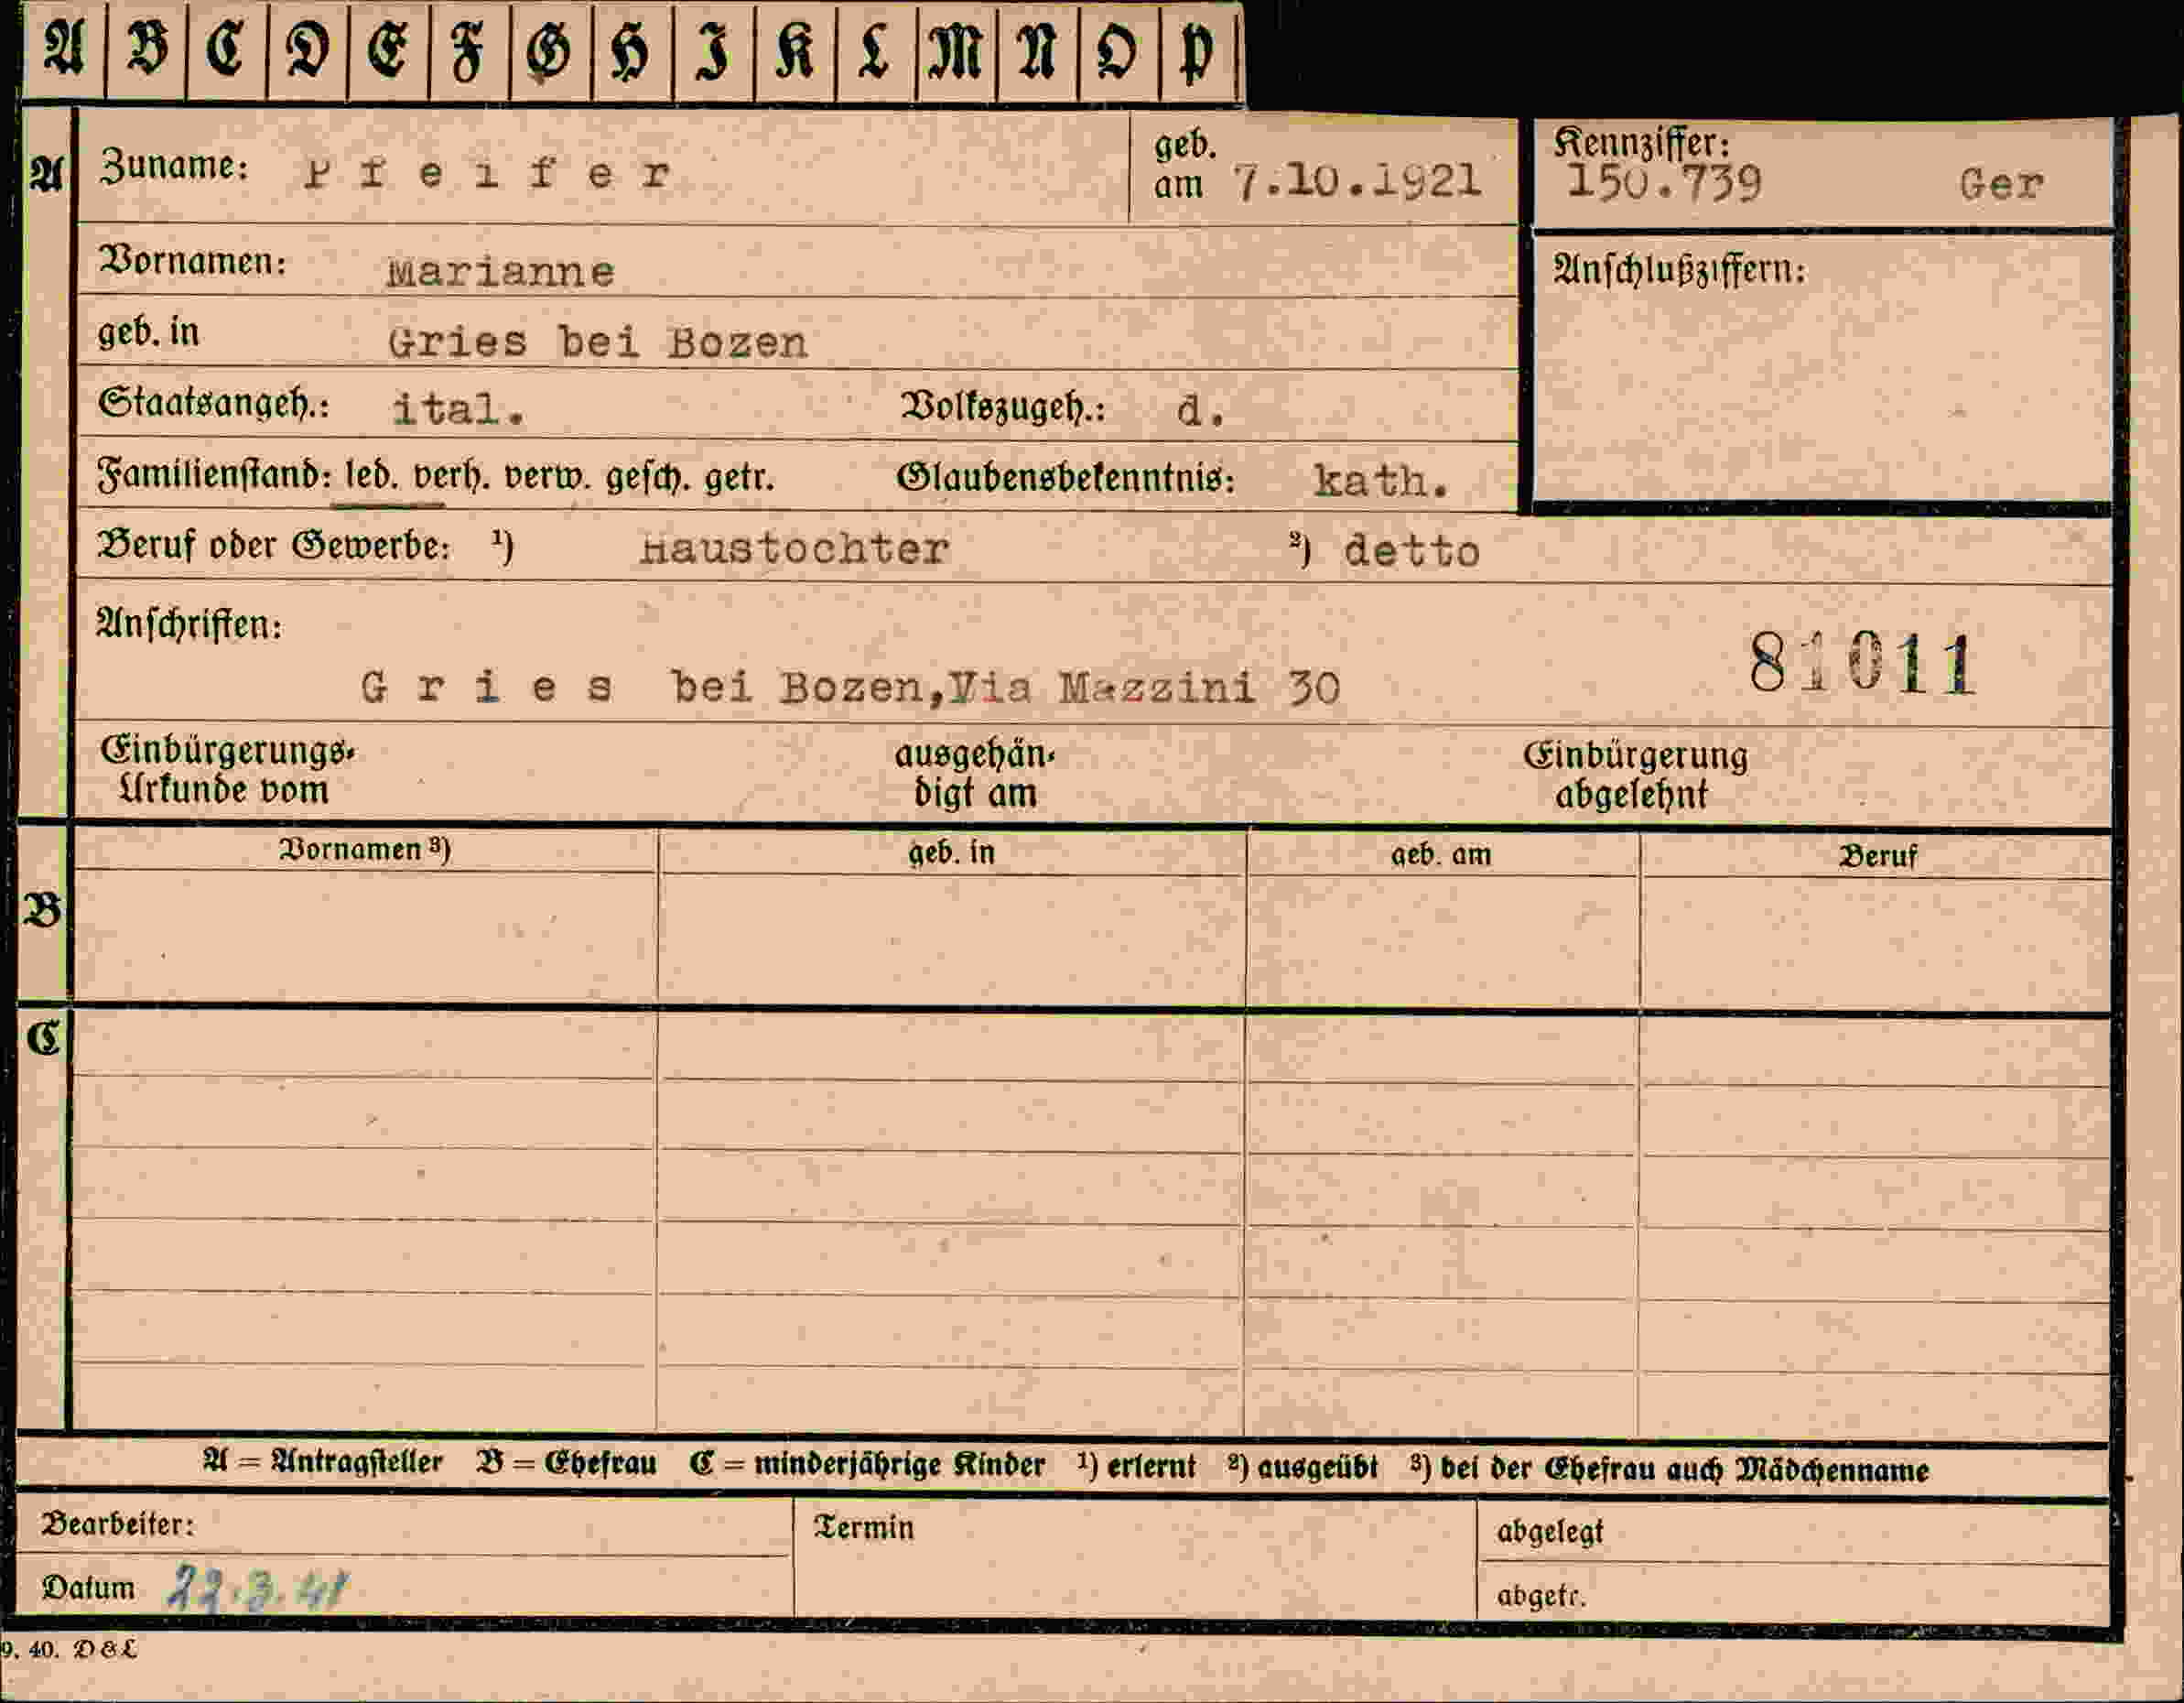 A B C D E F G H I K L M N O P
A Zuname: P f e i f e r geb. am 7.10.1921 Kennziffer: 150.739 Ger
Vornamen: Marianne Anschlußziffern:
geb. in Gries bei Bozen
Staatsangeh.: ital. Volkszugeh.: d.
Familienstand: led. verh. verw. gesch. getr. Glaubensbekenntnis: kath.
Beruf oder Gewerbe: ¹) Haustochter ²) detto
Anschriften:
81011
G r i e s bei Bozen,Via Mazzini 30
Einbürgerungs- ausgehän- Einbürgerung
Urkunde vom digt am abgelehnt
Vornamen ³) geb. in geb. am Beruf
B
C
A = Antragsteller B = Ehefrau C = minderjährige Kinder ¹) erlernt ²) ausgeübt ³) bei der Ehefrau auch Mädchenname
Bearbeiter: Termin abgelegt
Datum 22.3.41 abgetr.
9. 40. D & L